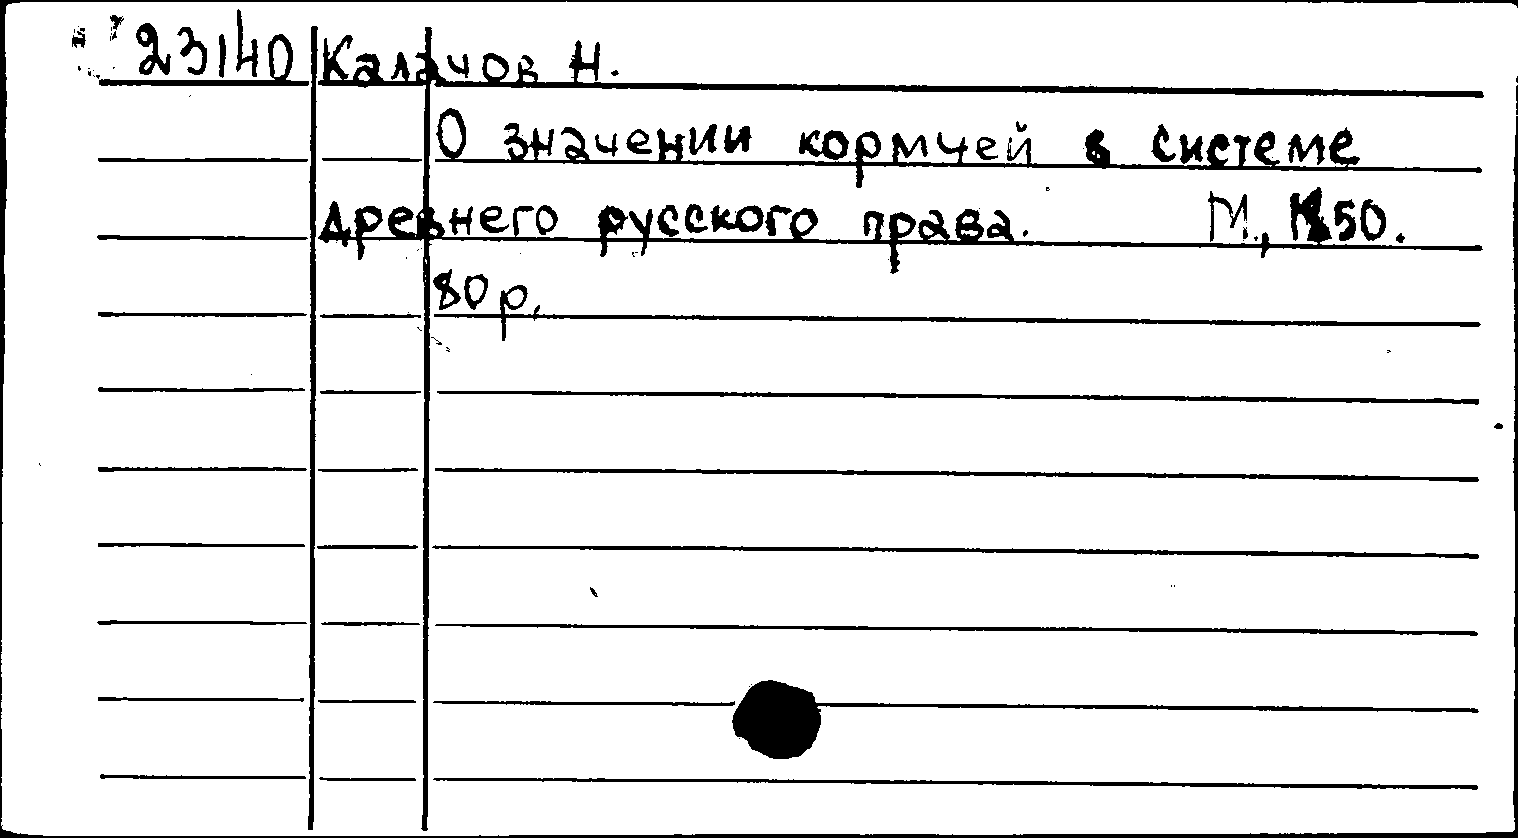 23140 Калачов Н.
О значении кормчей в системе
древнего русского права. М., 1850.
80 р.